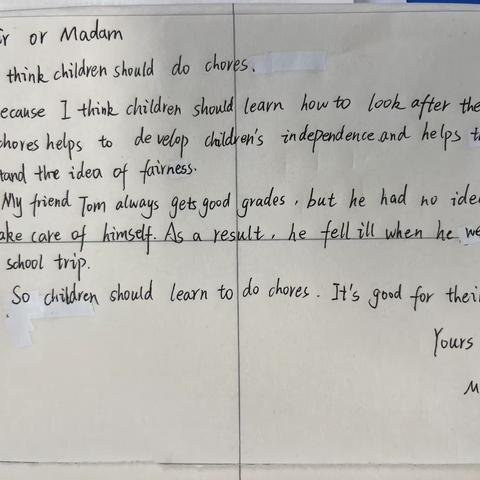 or Madam
think children should do chores.
ecause I think children should learn how to look after the
chores helps to develop children's independence.and helps t
tand the idea of fairness.
My friend Tom always gets good grades, but he had no idea
ake care of himself. As a result, he fell ill when he we
school trip.
So children should learn to do chores. It's good for their
Yours
M